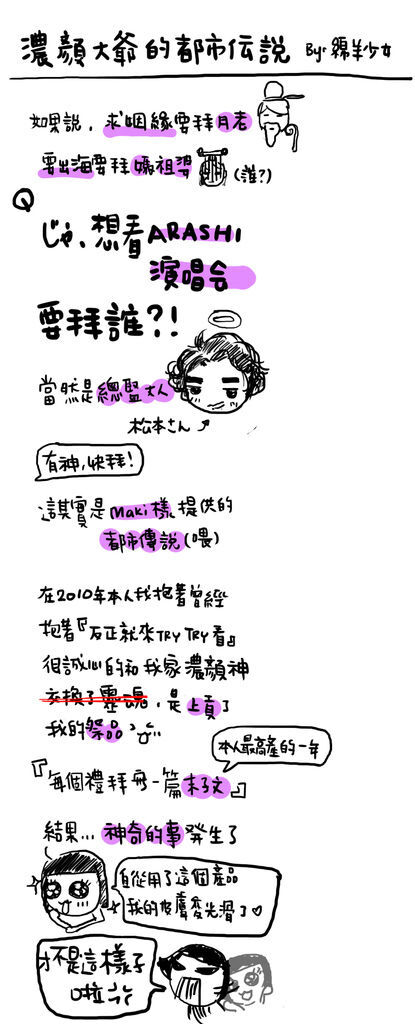 濃顏大爺的都市伝說 By:綿羊少女
如果說,求姻緣要拜月老
要出海要拜媽祖婆 (誰?)
Q
じゃ、想看ARASHI
演唱会
要拜誰?!
當然是總聖大人
松本さん
有神,快拜!
這其實是Maki樣提供的
都市傳說(喂)
在2010年本人我抱著曾經
抱著『反正就來TRY TRY看』
很誠心的和我家濃顏神
交換了靈魂,是上貢了
我的祭品
本人最高產的一年
『每個禮拜飛一篇末子文』
結果...神奇的事發生了
自從用了這個產品
我的皮膚變光滑了♡
才不是這樣子
啦